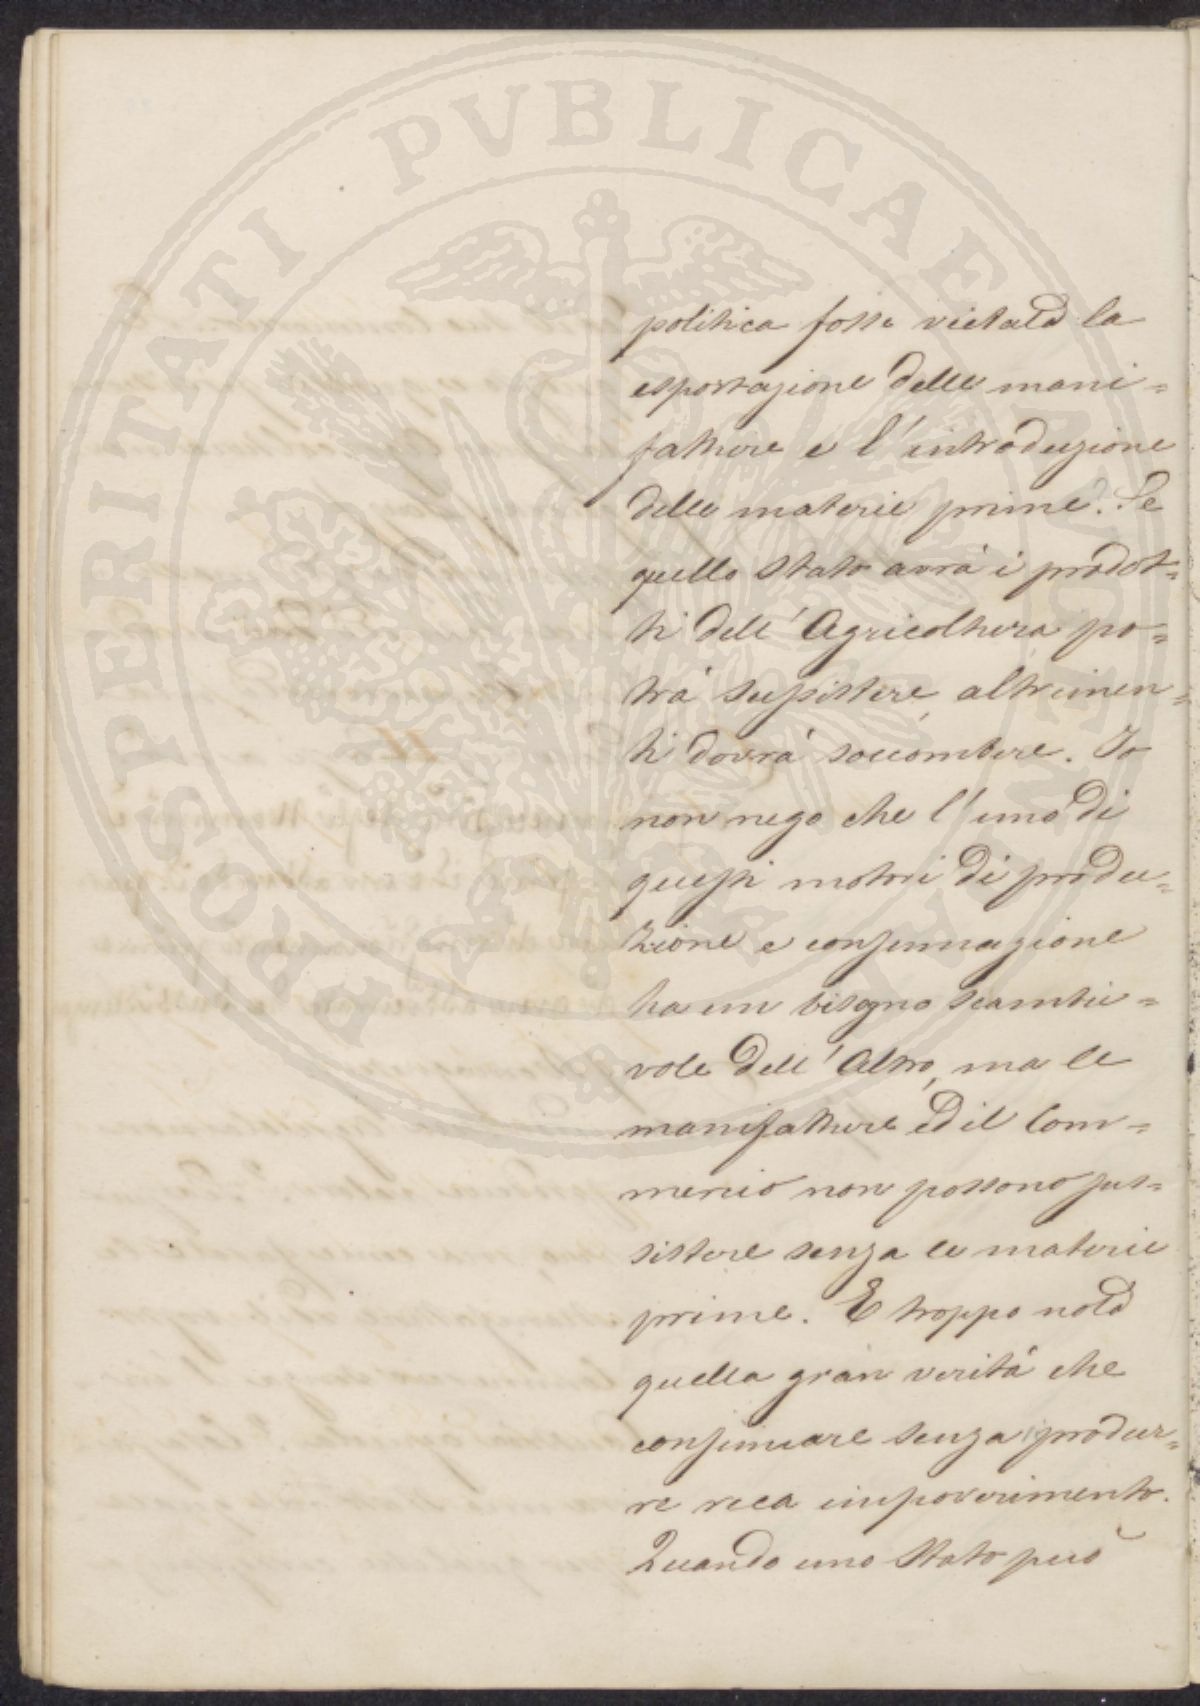 PROSPERITATI PVBLICAE AVGENDAE
politica fosse vietata la
esportazione delle mani=
fatture e l'introduzione
delle materie prime. Se
quello Stato avrà i prodot=
ti dell'Agricoltura po=
trà sussistere, altrimen=
ti dovrà soccombere. Io
non nego che l'uno di
questi motori di produ=
zione e consumazione
ha un bisogno scambie=
vole dell'Altro, ma le
manifatture ed il Com=
mercio non possono sus=
sistere senza le materie
prime. E troppo nota
quella gran verità che
consumare senza produr=
re reca impoverimento.
Quando uno Stato può